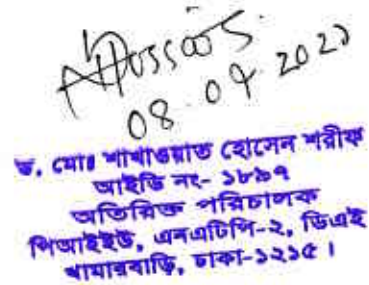 Hossain S.
08.04.2021
ড. মোঃ শাখাওয়াত হোসেন শরীফ
আইডি নং- ১৮৯৭
অতিরিক্ত পরিচালক
পিআইইউ, এনএটিপি-২, ডিএই
খামারবাড়ি, ঢাকা-১২১৫।